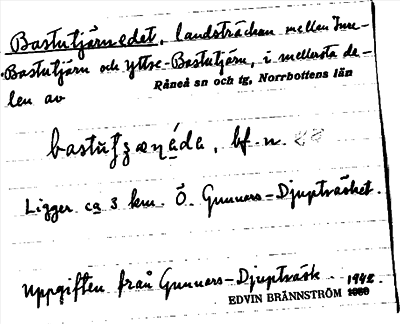 Bastutjärnedet, landsträckan mellan Inre-
Bastutjärn och Yttre-Bastutjärn, i mellersta de-
len av Råneå sn och tg, Norrbottens län
bf. n.
Ligger ca 3 km. Ö. Gunnars-Djupträsket.
Uppgiften från Gunnars-Djupträsk. 1942.
EDVIN BRÄNNSTRÖM